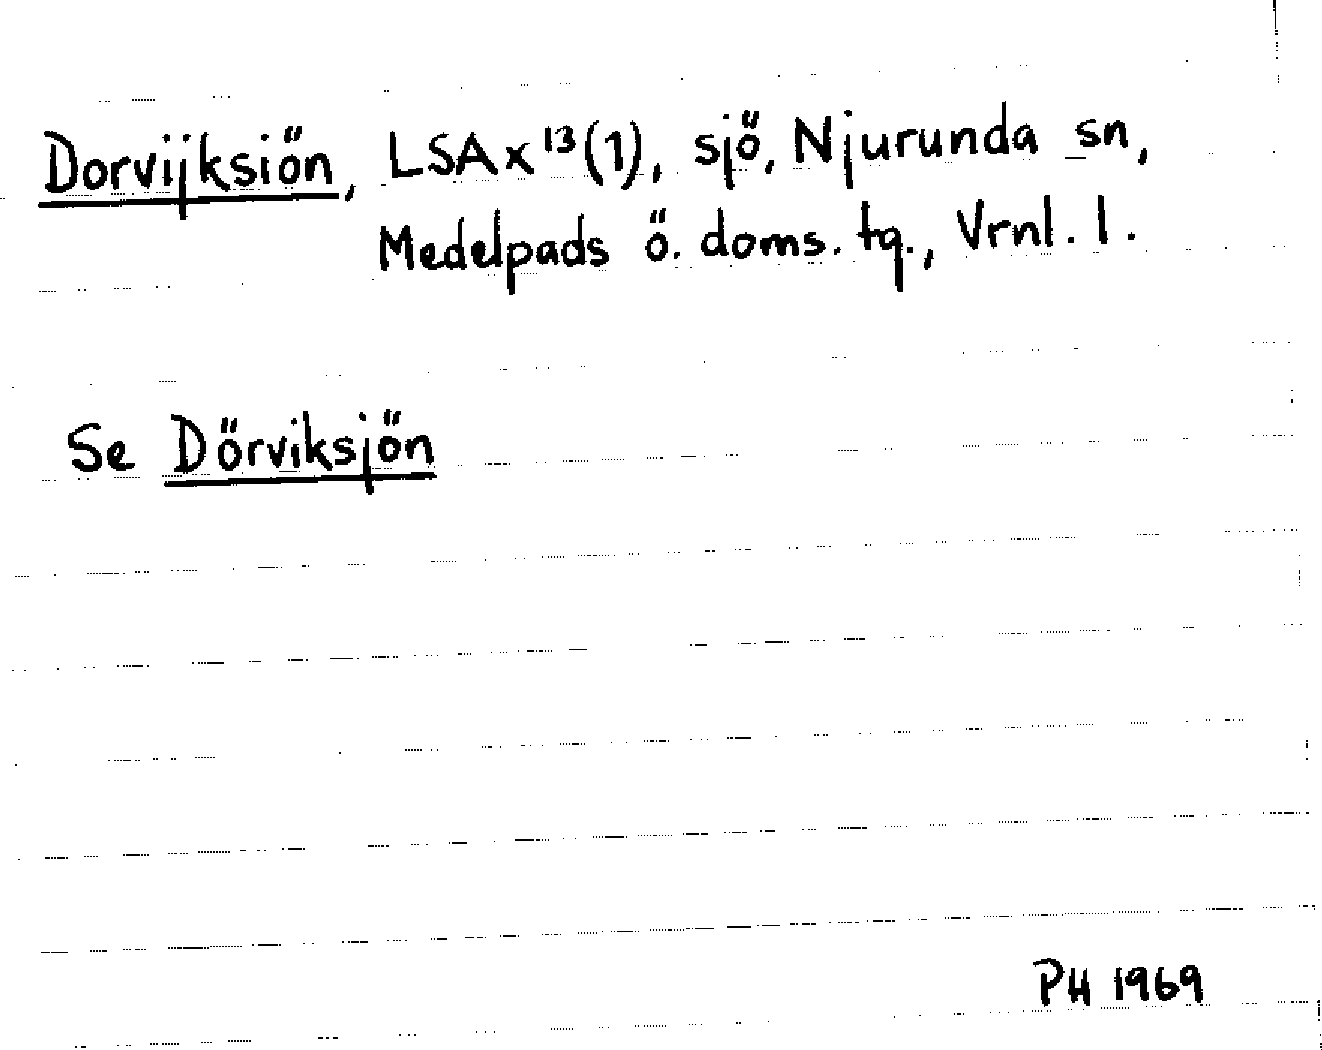 Dorvijksiön, LSA x¹³(1), sjö, Njurunda sn,
Medelpads ö. doms. tg., Vrnl. l.
Se Dörviksjön
PH 1969